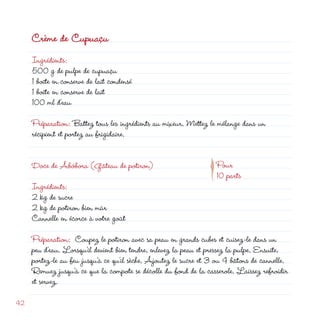 Crème de Cupuaçu
Ingrédients:
500 g de pulpe de cupuaçu
1 boîte en conserve de lait condensé
1 boîte en conserve de lait
100 ml d'eau
Préparation: Battez tous les ingrédients au mixeur. Mettez le mélange dans un
récipient et portez au frigidaire.
Doce de Abóbora (Gâteau de potiron)
Pour
10 parts
Ingrédients:
2 kg de sucre
2 kg de potiron bien mûr
Cannelle en écorce à votre goût
Préparation: Coupez le potiron avec sa peau en grands cubes et cuisez-le dans un
peu d'eau. Lorsqu'il devient bien tendre, enlevez la peau et pressez la pulpe. Ensuite,
portez-le au feu jusqu'à ce qu'il sèche. Ajoutez le sucre et 3 ou 4 bâtons de cannelle.
Remuez jusqu'à ce que la compote se décolle du fond de la casserole. Laissez refroidir
et servez.
42